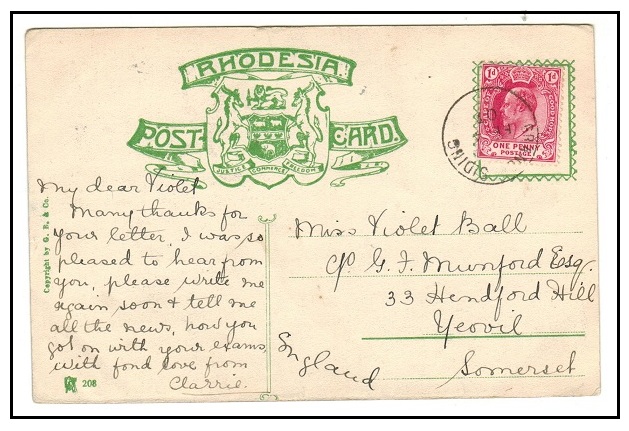 RHODESIA.
POST CARD.
JUSTICE COMMERCE FREEDOM
1d 1d
ONE PENNY
POSTAGE
SIDING
My dear Violet
Many thanks for
your letter, I was so
pleased to hear from
you, please write me
again soon & tell me
all the news, how you
got on with your exams,
with fond love from
Clarrie.
Copyright by G. B. & Co.
208
Miss Violet Ball
c/o G. F. Munford Esq.
33 Hendford Hill
Yeovil
Somerset
England